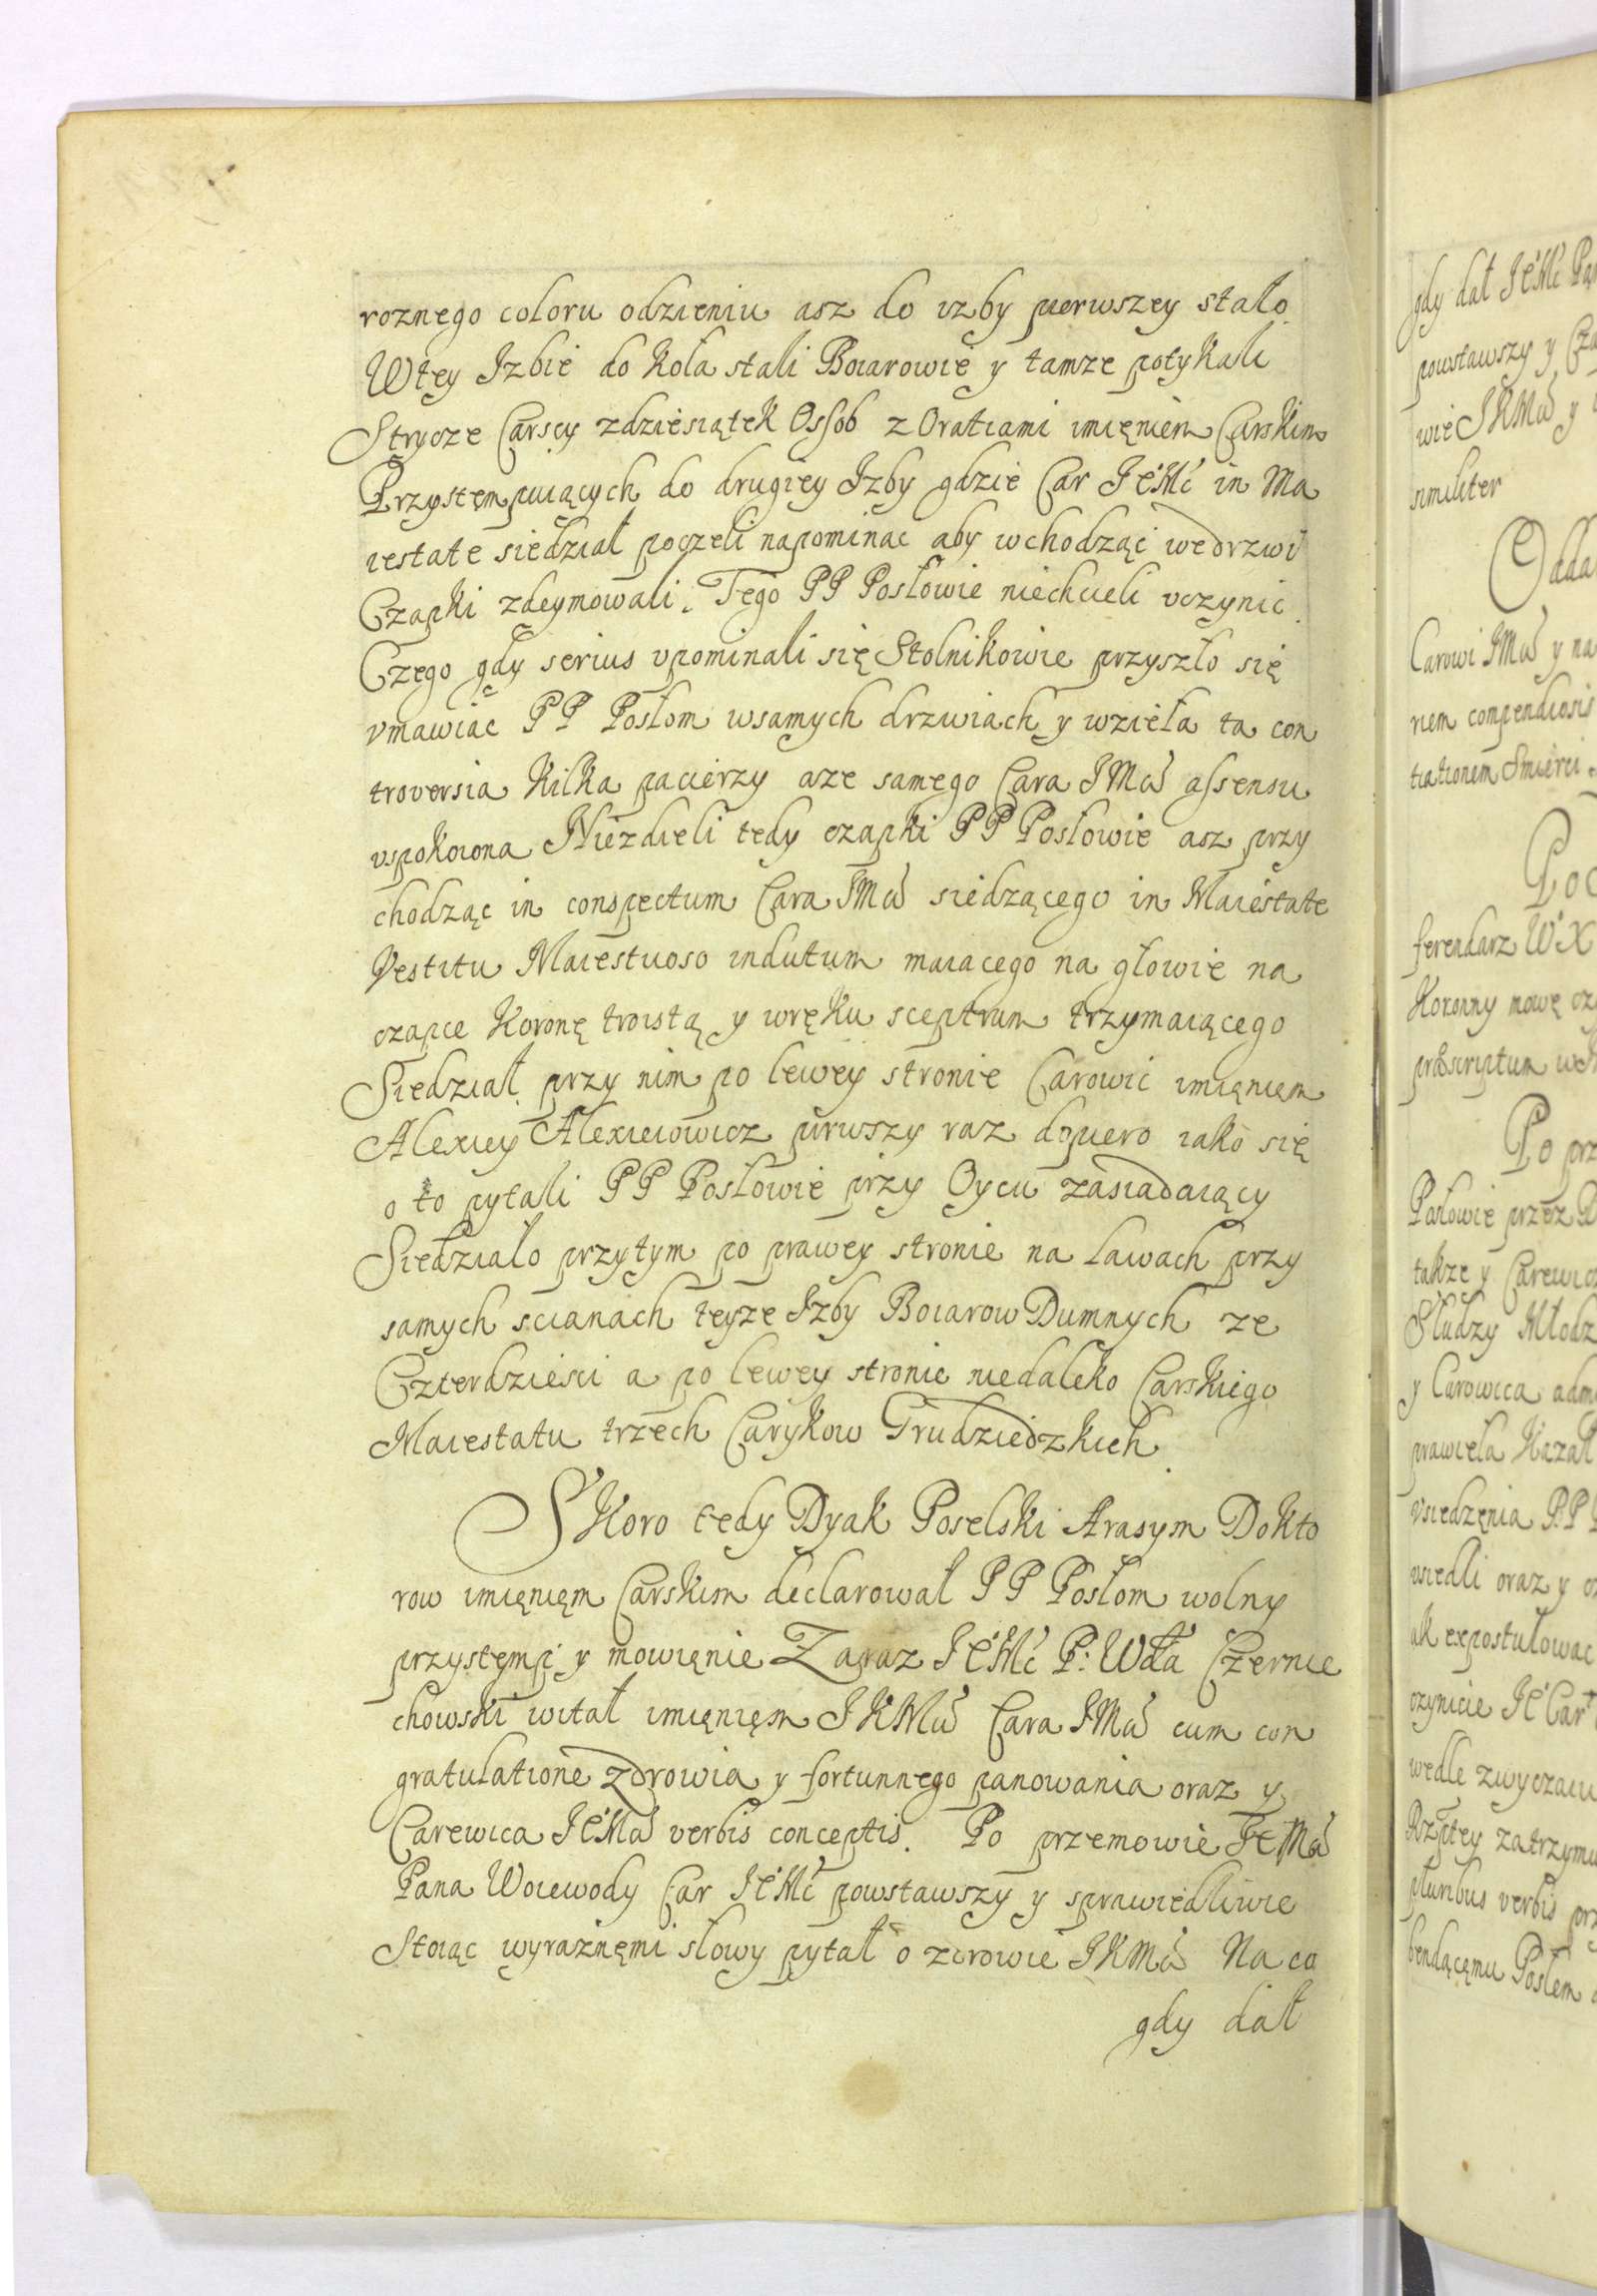 roznego coloru odzieniu asz do izby pierwszey stało.
Wtey Izbie do koła stali Boiarowie y tamze potykali
Strycze Carscy zdziesiątek Ossob z Oratiami imięniem Carskim
Przystempuiących do drugiey Izby gdzie Car JeMć in Ma
iestate siedział poczeli napominac aby wchodząc wedrzwi
Czapki zdeymowali. Tego PP Posłowie niechcieli vczynic.
Czego gdy serius vpominali się Stolnikowie przyszło się
vmawiac PP Posłom wsamych drzwiach y wzieła ta con
troversia kilka pacierzy aze samego Cara JMci assensu
vspokoiona Niezdieli tedy czapki PP Posłowie asz przy
chodząc in conspectum Cara JMci siedzącego in Maiestate
Vestitu Maiestuoso indutum maiacego na głowie na
czapce Koronę troistą y wręku sceptrum trzymaiącego
Siedział przy nim po lewey stronie Carowic imięniem
Alexiey Alexieiowicz pirwszy raz dopiero iako się
o to pytali PP Posłowie przy Oycu zasiadaiący
Siedziało przytym po prawey stronie na ławach przy
samych scianach teyze Izby Boiarow Dumnych ze
Czterdziesci a po lewey stronie niedaleko Carskiego
Maiestatu trzech Carykow Grudziedzkich.
Skoro tedy Dyak Poselski Arasym Dokto
row imięnięm Carskim declarował PP Posłom wolny
przystęmp y mowięnie Zaraz JeMć P: Wda Czernie
chowski witał imięnięm JKMci Cara JMci cum con
gratulatione zdrowia y fortunnego panowania oraz y
Carewica JeMci verbis conceptis. Po przemowie JeMci
Pana Woiewody Car JeMć powstawszy y sprawiedliwie
Stoiąc wyraznęmi słowy pytał o zdrowie JKMci Na co
gdy dał
gdy dał JeMć
powstawszy y
wie JKMci y
similiter
Odda
Carowi JMci y na
nem compendiosis
tiationem Smierci
Po
ferendarz WX
Koronny mowę
præscriptum
Po prz
Posłowie przez
takze y Carewic
Słudzy Młodz
y Carowica adm
prawiela Kazał
vsiedzęnia PP
vsiedli oraz y
ak expostułowac
czynicie Je Car
wedle zwyczaiu
Rzptey zatrzymu
pluribus verbis
bendącęmu Posłem